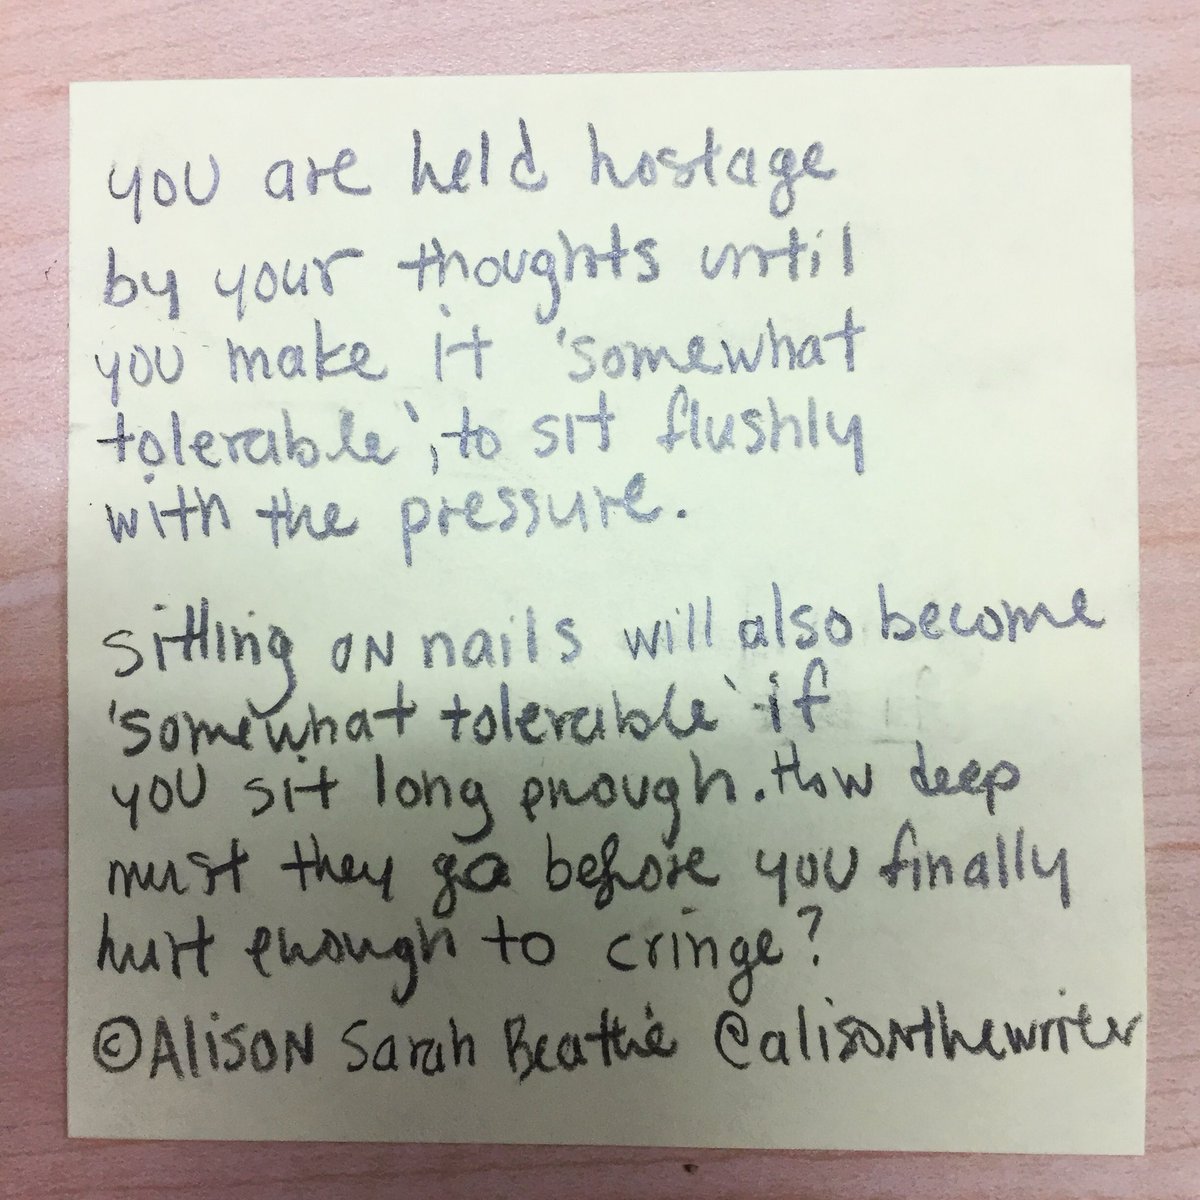 you are held hostage
by your thoughts until
you make it 'somewhat
tolerable', to sit flushly
with the pressure.
sitting on nails will also become
'somewhat tolerable' if
you sit long enough. How deep
must they go before you finally
hurt enough to cringe?
© Alison Sarah Beattie @alisonthewriter